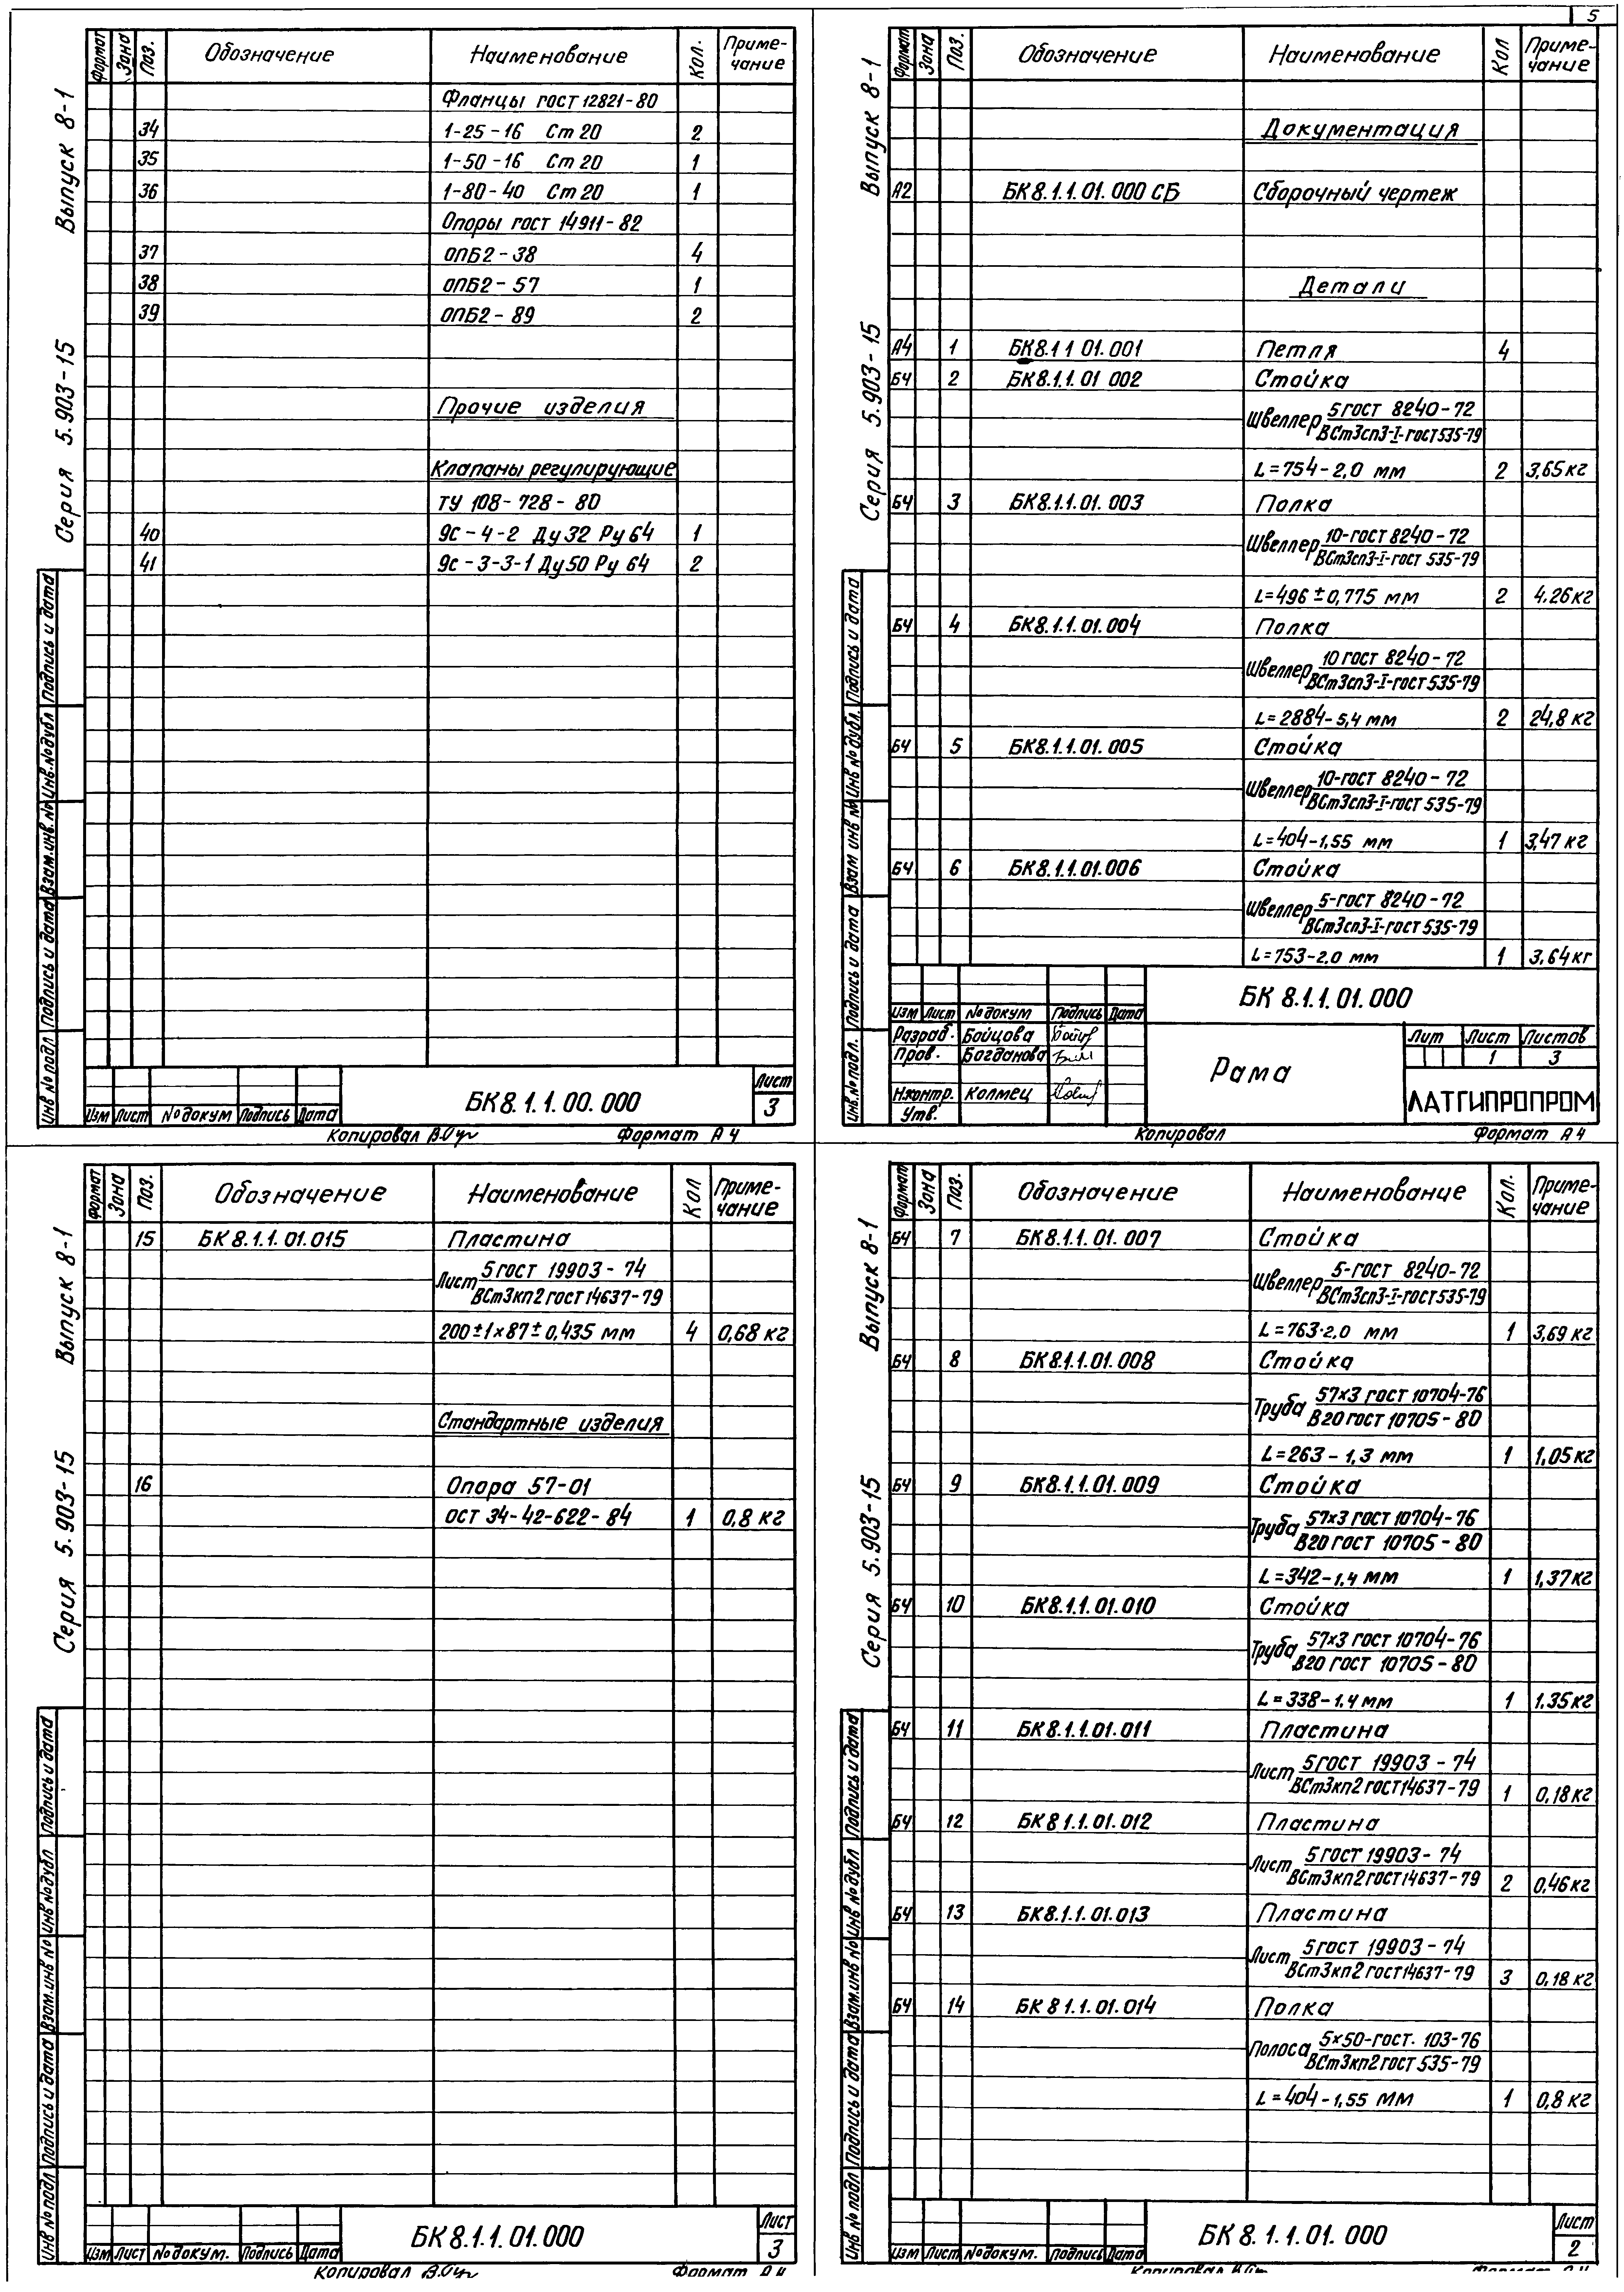 5
Выпуск 8-1
Серия 5.903-15
Формат Зона Поз. Обозначение Наименование Кол. Приме-
чание
Фланцы гост 12821-80
34 1-25-16 Ст 20 2
35 1-50-16 Ст 20 1
36 1-80-40 Ст 20 1
Опоры гост 14911-82
37 ОПБ2-38 4
38 ОПБ2-57 1
39 ОПБ2-89 2
Прочие изделия
Клапаны регулирующие
ТУ 108-728-80
40 9с-4-2 Ду 32 Ру 64 1
41 9с-3-3-1 Ду 50 Ру 64 2
Инв № подл Подпись и дата Взам.инв. № Инв.№ дубл Подпись и дата
БК 8.1.1.00.000
Лист
3
Изм Лист № докум Подпись Дата
Копировал Формат А4
Выпуск 8-1
Серия 5.903-15
Формат Зона Поз. Обозначение Наименование Кол Приме-
чание
Документация
А2 БК 8.1.1.01.000 СБ Сборочный чертеж
Детали
А4 1 БК 8.1 1 01.001 Петля 4
БЧ 2 БК 8.1.1.01 002 Стойка
Швеллер 5 гост 8240-72
ВСт3сп3-I-гост 535-79
L=754-2,0 мм 2 3,65 кг
БЧ 3 БК 8.1.1.01.003 Полка
Швеллер 10-гост 8240-72
ВСт3сп3-I-гост 535-79
L=496±0,775 мм 2 4.26 кг
БЧ 4 БК 8.1.1.01.004 Полка
Швеллер 10 гост 8240-72
ВСт3сп3-I-гост 535-79
L=2884-5,4 мм 2 24,8 кг
БЧ 5 БК 8.1.1.01.005 Стойка
Швеллер 10-гост 8240-72
ВСт3сп3-I-гост 535-79
L=404-1,55 мм 1 3,47 кг
БЧ 6 БК 8.1.1.01.006 Стойка
Швеллер 5-гост 8240-72
ВСт3сп3-I-гост 535-79
L=753-2.0 мм 1 3,64 кг
Инв.№ подл. Подпись и дата Взам инв № Инв № дубл. Подпись и дата
БК 8.1.1.01.000
Изм Лист № докум Подпись Дата
Разраб. Бойцова
Пров. Богданова
Н.контр. Колмец
Утв.
Рама
Лит Лист Листов
1 3
ЛАТГИПРОПРОМ
Копировал Формат А4
Выпуск 8-1
Серия 5.903-15
Формат Зона Поз. Обозначение Наименование Кол Приме-
чание
15 БК 8.1.1.01.015 Пластина
Лист 5 гост 19903-74
ВСт3кп2 гост 14637-79
200±1×87±0,435 мм 4 0,68 кг
Стандартные изделия
16 Опора 57-01
ОСТ 34-42-622-84 1 0,8 кг
Инв № подл Подпись и дата Взам.инв № Инв № дубл Подпись и дата
БК 8.1.1.01.000
Лист
3
Изм Лист № докум. Подпись Дата
Копировал Формат А4
Выпуск 8-1
Серия 5.903-15
Формат Зона Поз. Обозначение Наименование Кол. Приме-
чание
БЧ 7 БК 8.1.1.01.007 Стойка
Швеллер 5-гост 8240-72
ВСт3сп3-I-гост 535-79
L=763-2.0 мм 1 3,69 кг
БЧ 8 БК 8.1.1.01.008 Стойка
Труба 57×3 гост 10704-76
В 20 гост 10705-80
L=263-1,3 мм 1 1,05 кг
БЧ 9 БК 8.1.1.01.009 Стойка
Труба 57×3 гост 10704-76
В20 гост 10705-80
L=342-1,4 мм 1 1,37 кг
БЧ 10 БК 8.1.1.01.010 Стойка
Труба 57×3 гост 10704-76
В20 гост 10705-80
L=338-1.4 мм 1 1.35 кг
БЧ 11 БК 8.1.1.01.011 Пластина
Лист 5 гост 19903-74
ВСт3кп2 гост 14637-79 1 0,18 кг
БЧ 12 БК 8 1.1.01.012 Пластина
Лист 5 гост 19903-74
ВСт3кп2 гост 14637-79 2 0,46 кг
БЧ 13 БК 8.1.1.01.013 Пластина
Лист 5 гост 19903-74
ВСт3кп2 гост 14637-79 3 0,18 кг
БЧ 14 БК 8 1.1.01.014 Полка
Полоса 5×50-гост. 103-76
ВСт3кп2 гост 535-79
L=404-1,55 мм 1 0,8 кг
Инв № подл Подпись и дата Взам.инв № Инв № дубл Подпись и дата
БК 8.1.1.01.000
Лист
2
Изм Лист № докум. Подпись Дата
Копировал